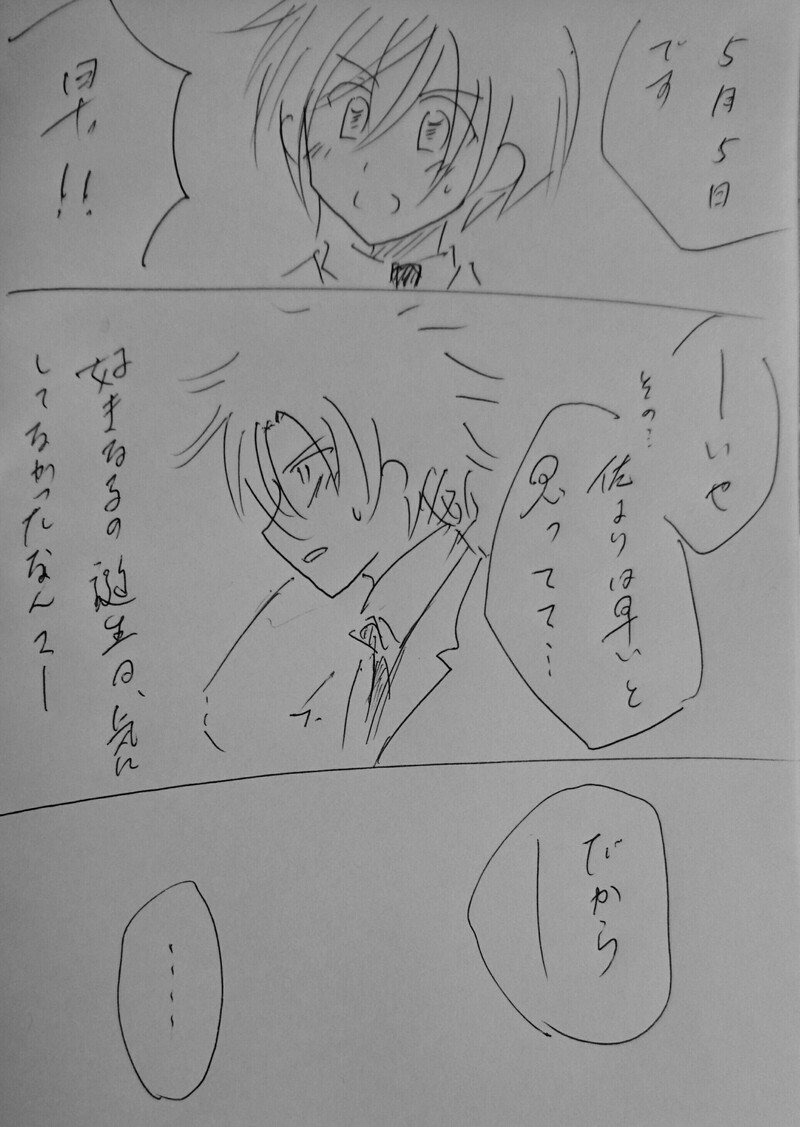 5月5日
です
早っ!!
―いや
その…
佐よりは早いと
思ってて…
好きなるの誕生日、気に
してなかったなんてー
だから
―
……